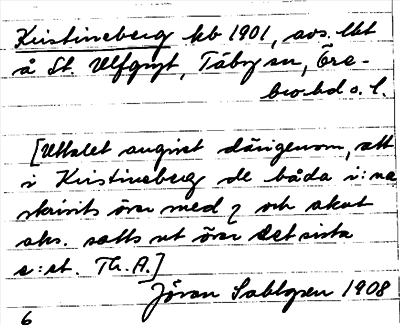 Kristineberg hb 1901, avs. lht
å St. Ulfgryt, Täby sn, Öre-
bro hd o. l.
[Uttalet angivet därigenom, att
i Kristineberg de båda i:na
skrivits över med 2 och akut
aks. satts ut över det sista
e:et. Th. A.]
Jöran Sahlgren 1908
6